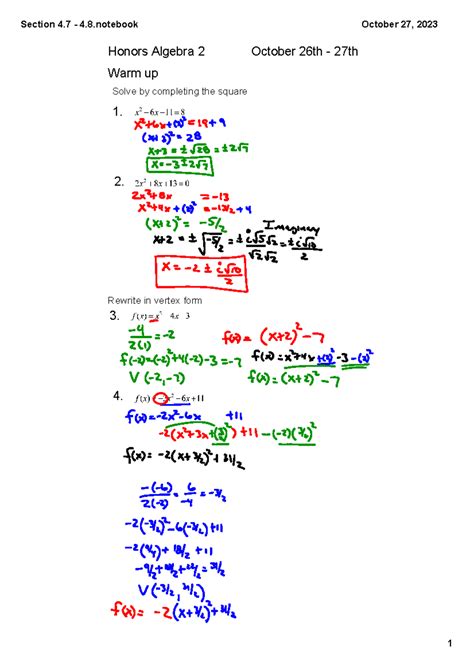 Section 4.7 - 4.8.notebook
October 27, 2023
Honors Algebra 2 October 26th - 27th
Warm up
Solve by completing the square
1. x² - 6x - 11 = 8
x² + 6x + (3)² = 19 + 9
(x + 3)² = 28
x + 3 = ± √28 = ± 2√7
x = -3 ± 2√7
2. 2x² + 8x + 13 = 0
2x² + 8x = -13
x² + 4x + (2)² = -13/2 + 4
(x + 2)² = -5/2
Imaginary
x + 2 = ± √-5/2 = ± i√5 √2 / √2 √2 = ± i√10 / 2
x = -2 ± i√10 / 2
Rewrite in vertex form
3. f(x) = x² 4x 3
-4 / 2(1) = -2
f(x) = (x+2)² - 7
f(-2) = (-2)² + 4(-2) - 3 = -7
f(x) = x² + 4x + (2)² - 3 - (2)²
V(-2, -7)
f(x) = (x+2)² - 7
4. f(x) = -2x² - 6x + 11
f(x) = -2x² - 6x + 11
-2(x² + 3x + (3/2)²) + 11 - (-2)(3/2)²
f(x) = -2(x + 3/2)² + 31/2
-(-6) / 2(-2) = 6 / -4 = -3/2
-2(-3/2)² - 6(-3/2) + 11
-2(9/4) + 18/2 + 11
-9/2 + 18/2 + 22/2 = 31/2
V(-3/2, 31/2)
f(x) = -2(x + 3/2)² + 31/2
1